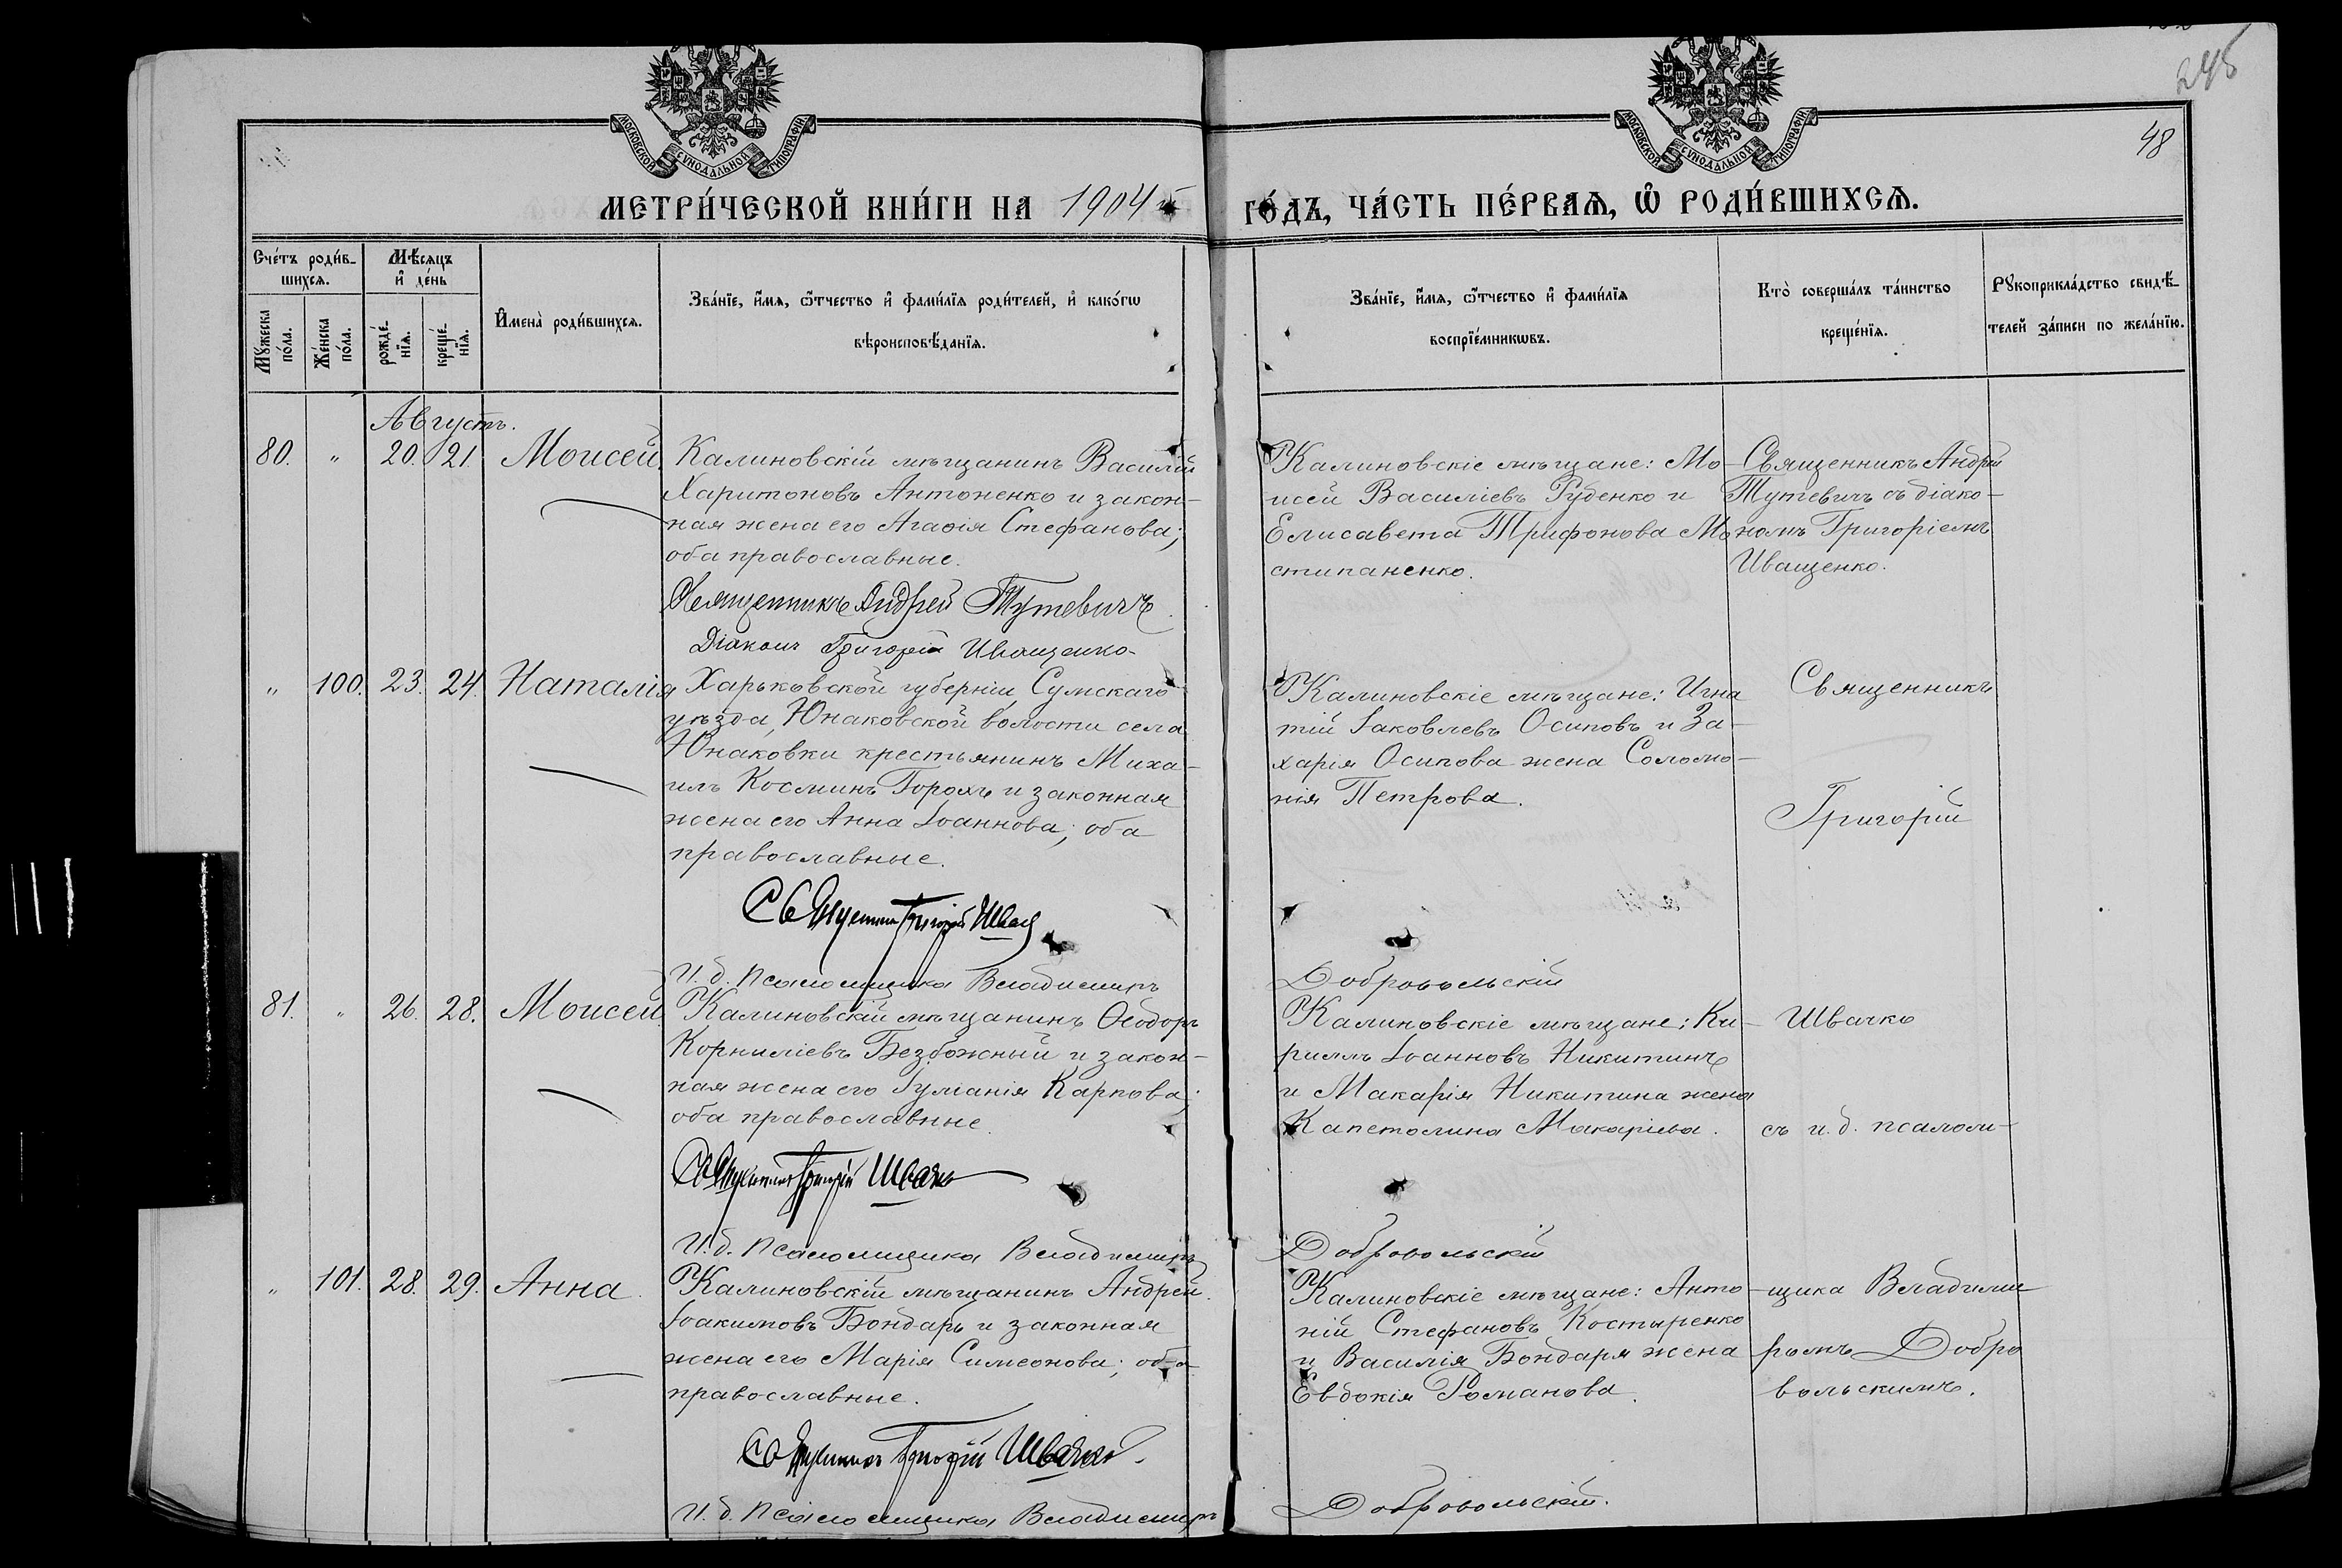 245
48
МОСКОВСКОЙ СѴНОДАЛЬНОЙ ТИПОГРАФІИ
МОСКОВСКОЙ СѴНОДАЛЬНОЙ ТИПОГРАФІИ
МЕТРИ́ЧЕСКОЙ КНИ́ГИ НА 1904 й
ГО́ДЪ, ЧА́СТЬ ПЕ́РВАѦ, Ѡ҆ РОДИ́ВШИХСѦ.
Сче́тъ роди́в-
шихсѧ.
Мѣ́сѧцъ
и҆ де́нь
Мꙋ́жеска
по́ла.
Же́нска
по́ла.
рожде́-
нїѧ.
креще́-
нїѧ.
И҆мена̀ роди́вшихсѧ.
Зва́нїе, и҆́мѧ, ѻ҆́тчество и҆ фами́лїѧ роди́телей, и҆ како́гѡ
вѣроисповѣ́данїѧ.
Зва́нїе, и҆́мѧ, ѻ҆́тчество и҆ фами́лїѧ
воспрїе́мникѡвъ.
Кто̀ соверша́лъ та́инство
креще́нїѧ.
Рꙋкоприкла́дство свидѣ́-
телей за́писи по жела́нїю.
Августъ.
80. " 20. 21. Моисей.
Калиновскій мѣщанинъ Василій
Харитоновъ Антоненко и закон-
ная жена его Агаѳія Стефанова;
оба православные.
Священникъ Андрей Тутевичъ
Діаконъ Григорій Иващенко
Калиновскіе мѣщане: Мо-
исей Василіевъ Руденко и
Елисавета Трифонова Мо
стипаненко.
Священникъ Андрей
Тутевичъ съ діако-
номъ Григоріемъ
Иващенко.
" 100. 23. 24. Наталія
Харьковской губерніи, Сумскаго
уѣзда, Юнаковской волости села
Юнаковки крестьянинъ Миха-
илъ Косминъ Горохъ и законная
жена его Анна Іоаннова; оба
православные.
Священникъ Григорій Швач
И. д. Псаломщика Владимиръ
Добровольскій
Калиновскіе мѣщане: Игна
тій Іаковлевъ Осиповъ и За-
харія Осипова жена Соломо-
нія Петрова.
Священникъ
Григорій
81. " 26. 28. Моисей.
Калиновскій мѣщанинъ Ѳеодоръ
Корниліевъ Безбожный и закон-
ная жена его Іуліанія Карпова;
оба православные.
Священникъ Григорій Швачко
И. д. Псаломщика Владимиръ
Добровольскій
Калиновскіе мѣщане: Ки-
риллъ Іоанновъ Никитинъ
и Макарія Никитина жена
Капетолина Макаріева.
Швачко
съ и. д. псалом-
" 101. 28. 29. Анна.
Калиновскій мѣщанинъ Андрей
Іоакимовъ Бондарь и законная
жена его Марія Симеонова; оба
православные.
Священникъ Григорій Швачко
И. д. Псаломщика Владимиръ
Добровольскій.
Калиновскіе мѣщане: Анто-
ній Стефановъ Костыренко
и Василія Бондаря жена
Евдокія Романова.
щика Владими
ромъ Добро
вольскимъ.